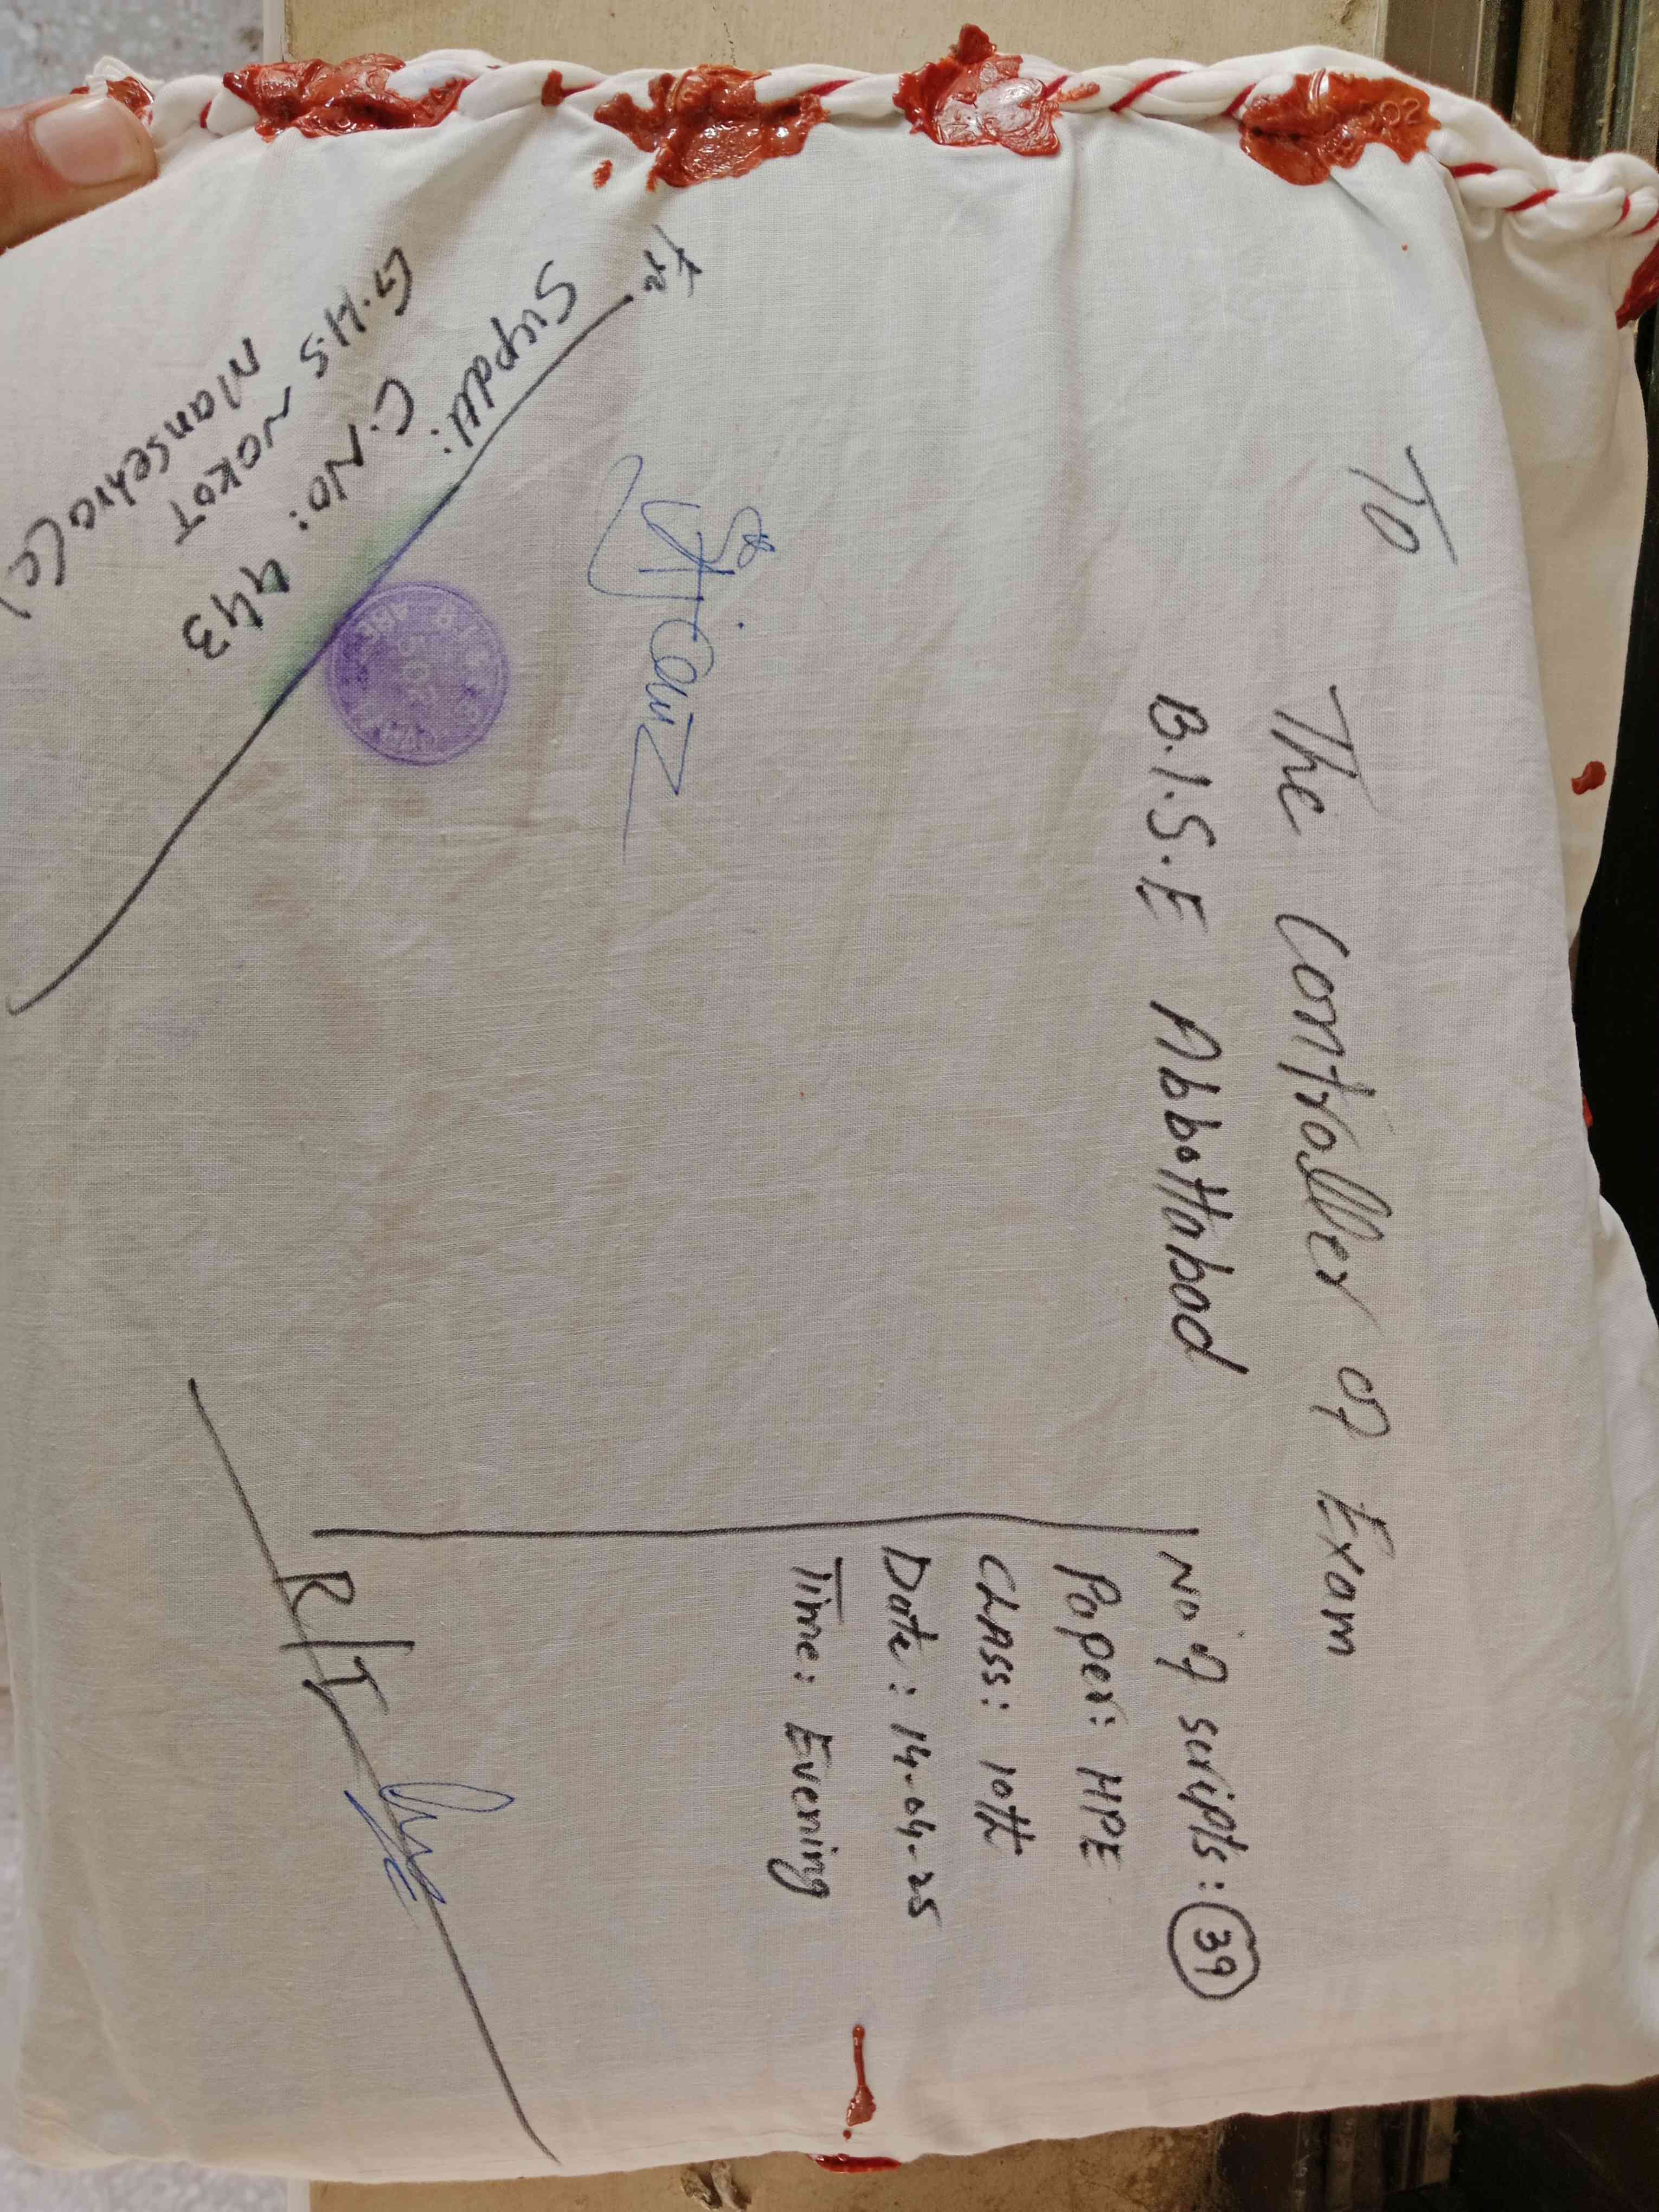 To
The Controller of Exam
B.I.S.E Abbottabad
No of scripts: 39
Paper: HPE
CLASS: 10th
Date: 14-04-25
Time: Evening
R/I
Supdtt:
C.No: 443
G.H.S NOKOT
Mansehra
502
502